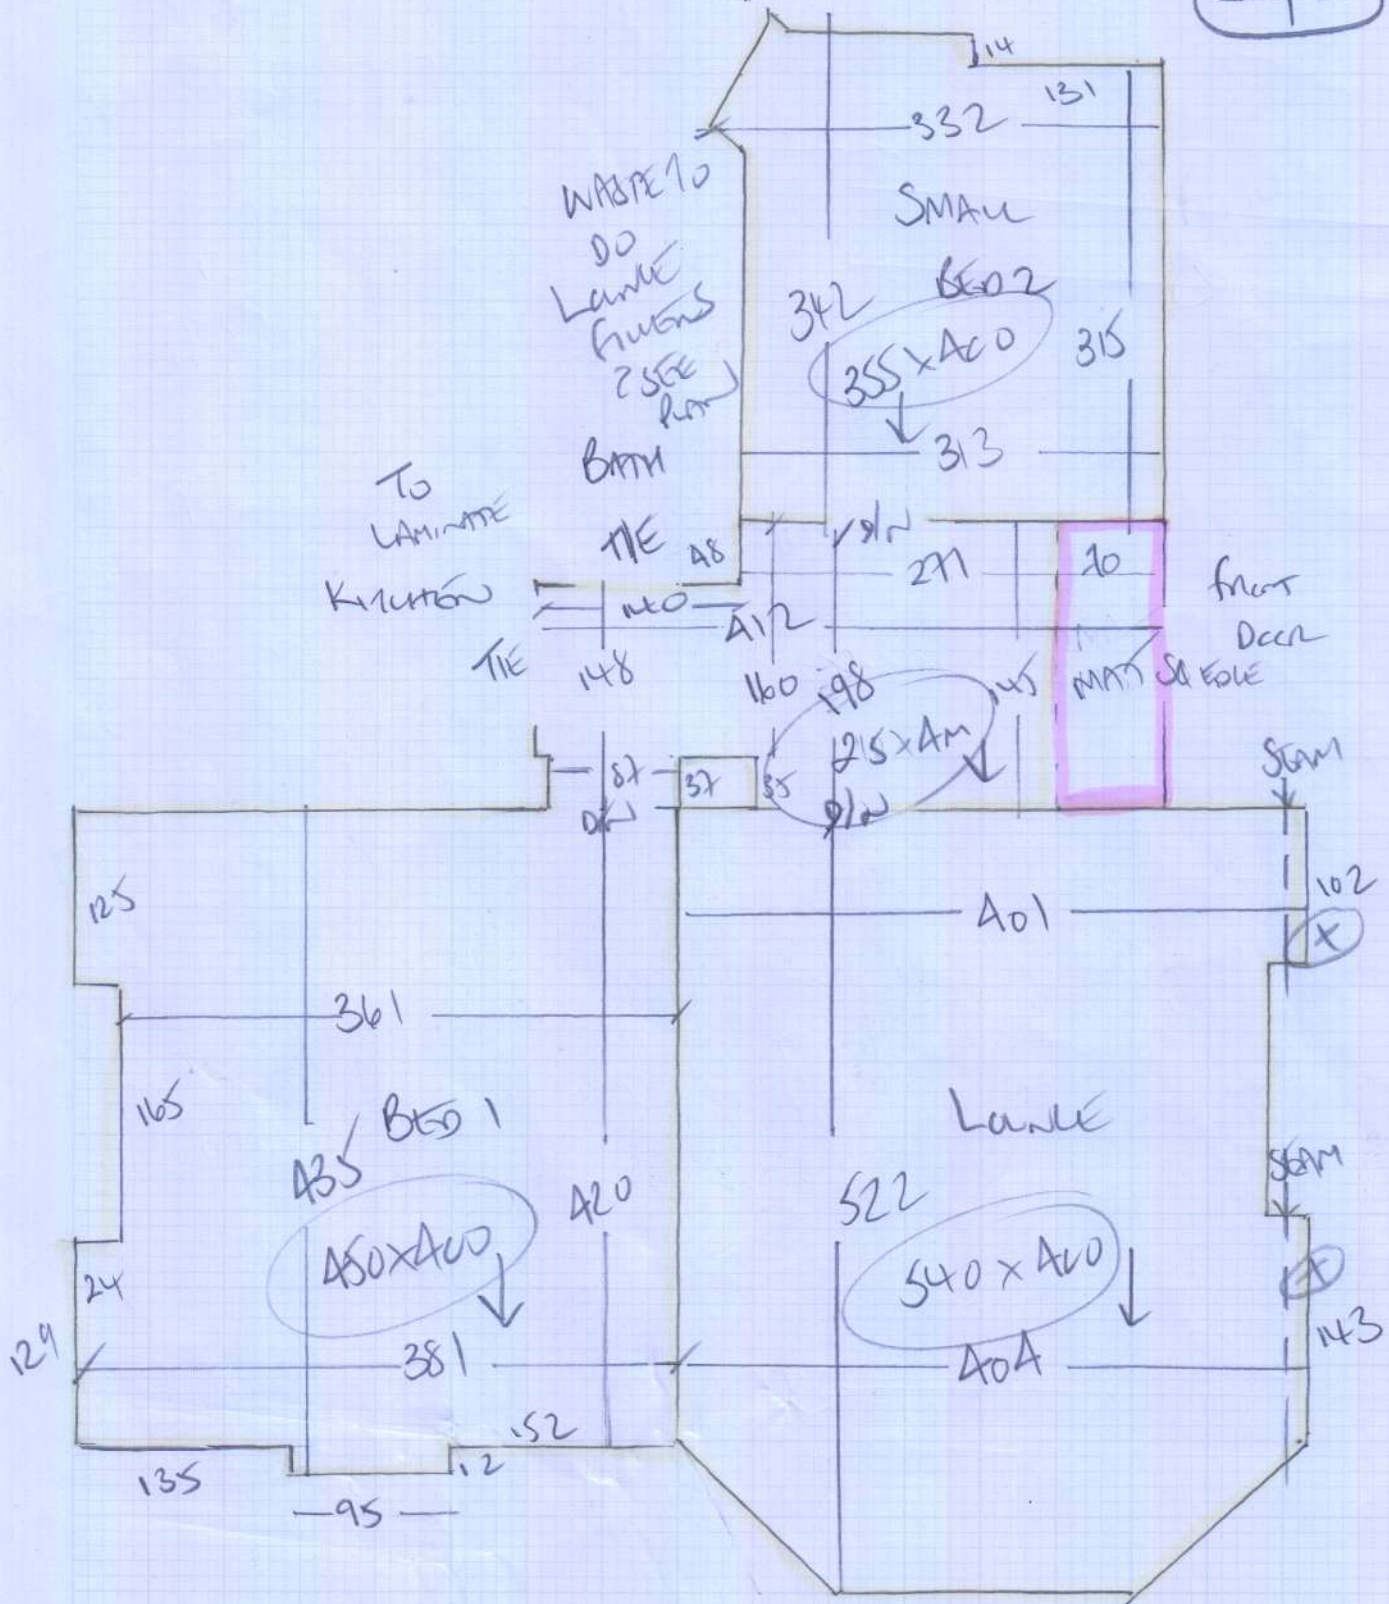 14
131
332
WASTE TO
DO
LOUNGE
FILLERS
? SEE
PLAN
SMALL
BED 2
342
355 X 400
315
313
BATH
TILE
TO
LAMINATE
KITCHEN
TILE
48
D/W
271
70
FRONT
DOOR
140
412
148
160
198
145
MAT SQ EDGE
215 X 4M
87
37
35
D/W
D/W
SEAM
125
401
102
+
361
165
BED 1
LOUNGE
435
420
522
SEAM
450 X 400
540 X 400
+
24
129
381
404
143
152
12
135
95